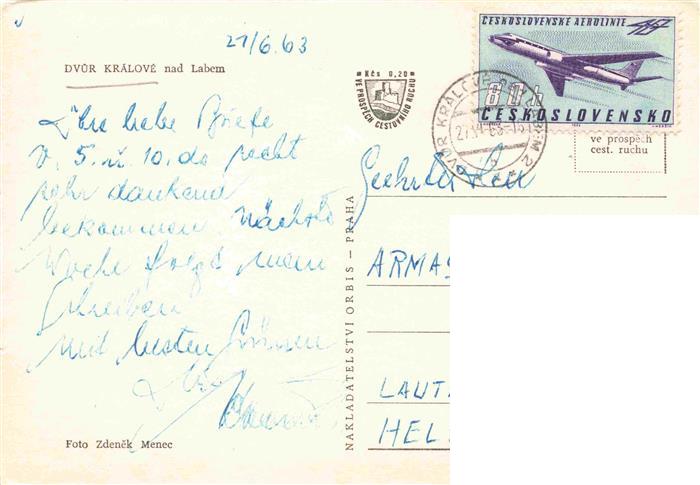 21/6.63
DVŮR KRÁLOVÉ nad Labem
Ihre liebe Briefe
v. 5. u. 10. do recht
sehr dankend
bekommen Nächste
Woche folgt mein
Schreiben
mit besten Grüssen
Ihr
Foto Zdeněk Menec
NAKLADATELSTVÍ ORBIS — PRAHA
Kčs 0,20
VE PROSPĚCH CESTOVNÍHO RUCHU
ČESKOSLOVENSKÉ AEROLINIE
80 h
ČESKOSLOVENSKO
DVŮR KRÁLOVÉ
LABEM 2
ve prospěch
cest. ruchu
Geehrter Herr
ARMAS
LAUT
HEL